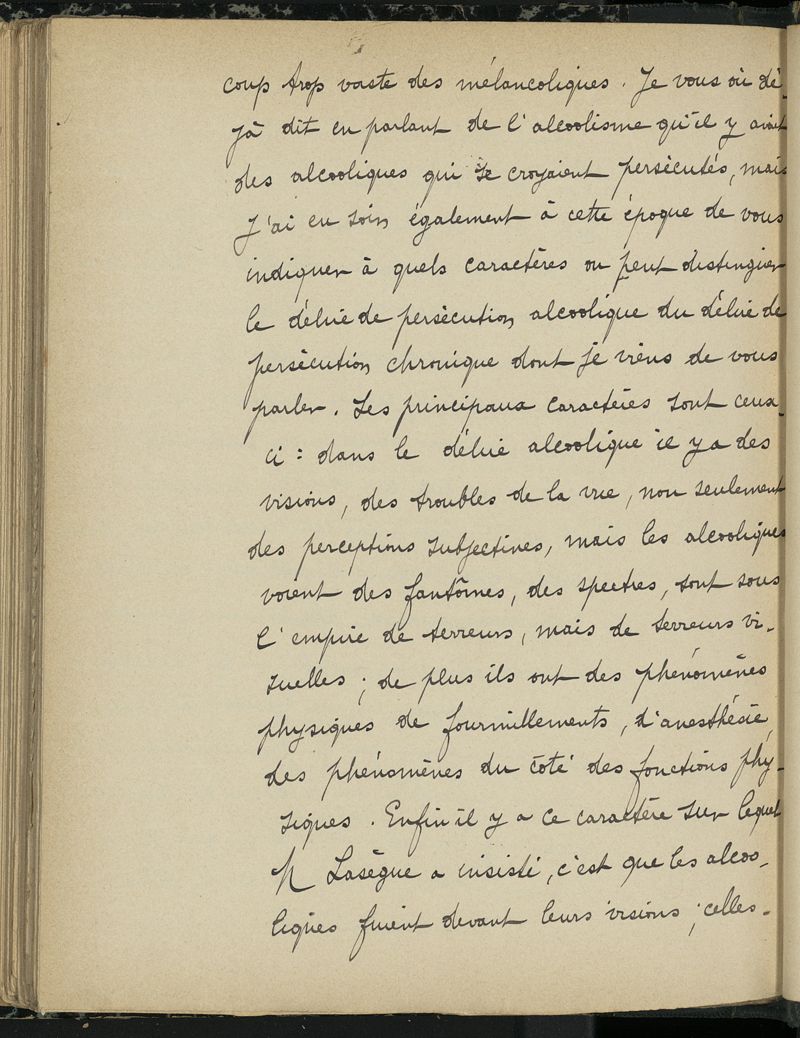 coup trop vaste des mélancoliques. Je vous ai dé-
jà dit en parlant de l'alcoolisme qu'il y avait
des alcooliques qui se croyaient persécutés, mais
j'ai eu soin également à cette époque de vous
indiquer à quels caractères on peut distinguer
le délire de persécution alcoolique du délire de
persécution chronique dont je viens de vous
parler. Les principaux caractères sont ceux-
ci : dans le délire alcoolique il y a des
visions, des troubles de la vue, non seulement
des perceptions subjectives, mais les alcooliques
voient des fantômes, des spectres, sont sous
l'empire de terreurs, mais de terreurs vi-
suelles ; de plus ils ont des phénomènes
physiques de fourmillements, d'anesthésie,
des phénomènes du côté des fonctions phy-
siques. Enfin il y a ce caractère sur lequel
M Lasègue a insisté, c'est que les alcoo-
liques fuient devant leurs visions ; celles-